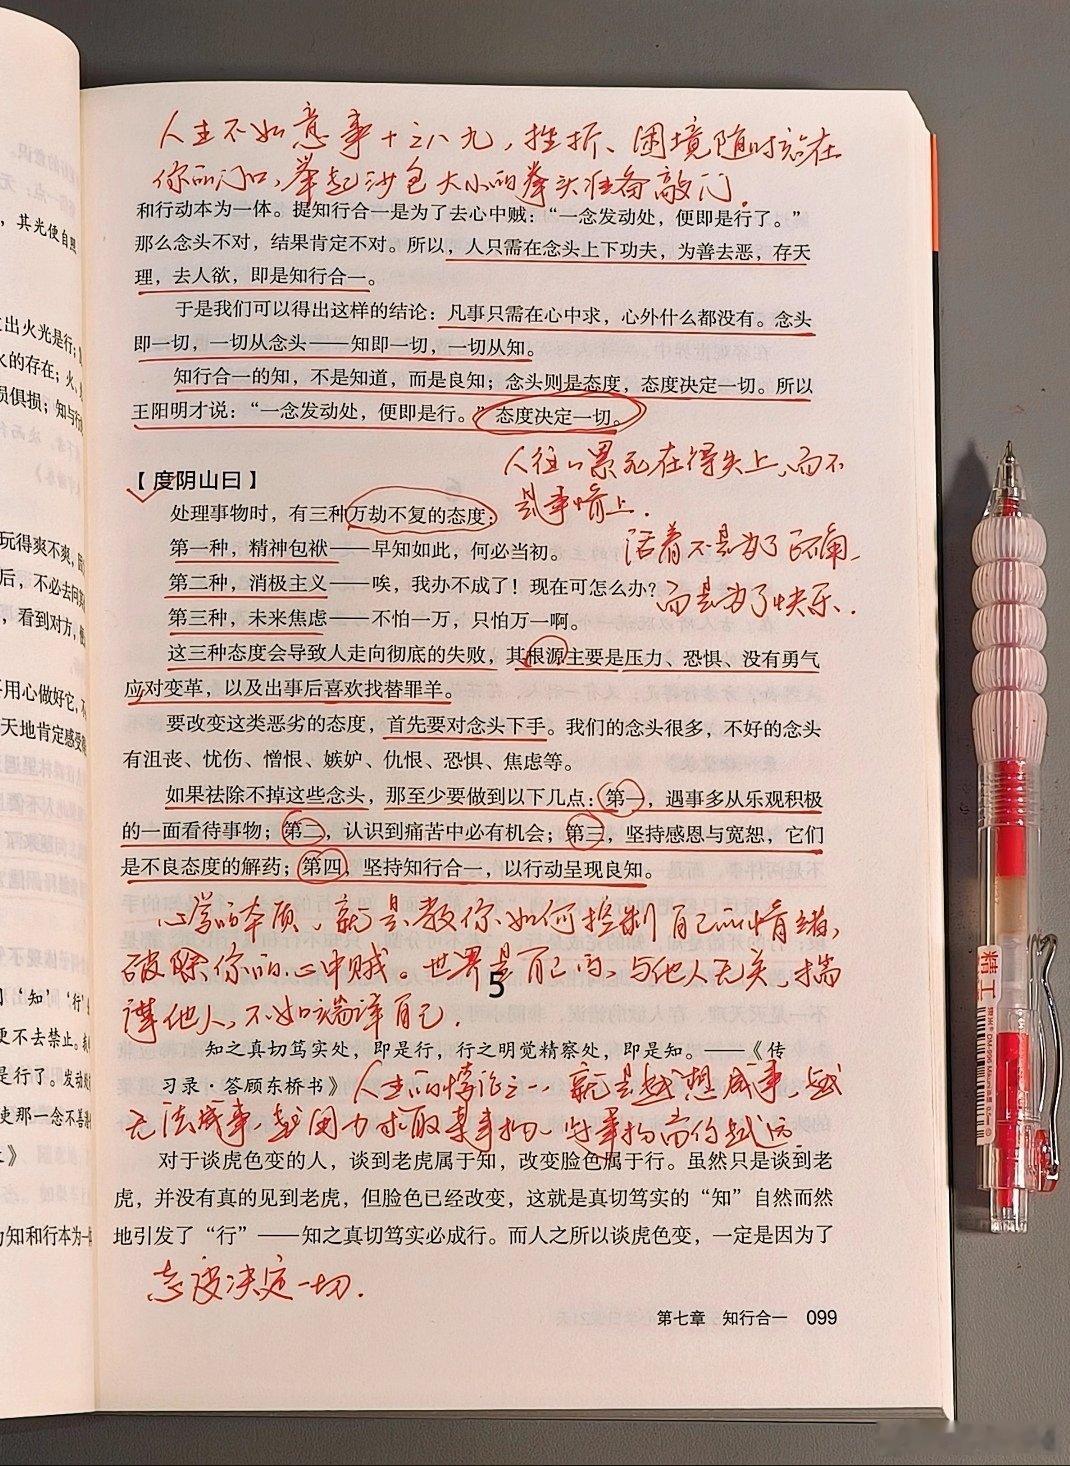 人生不如意事十之八九，挫折、困境随时站在
你的门口，举起沙包大小的拳头准备敲门．
和行动本为一体。提知行合一是为了去心中贼：“一念发动处，便即是行了。”
那么念头不对，结果肯定不对。所以，人只需在念头上下功夫，为善去恶，存天
理，去人欲，即是知行合一。
于是我们可以得出这样的结论：凡事只需在心中求，心外什么都没有。念头
即一切，一切从念头——知即一切，一切从知。
知行合一的知，不是知道，而是良知；念头则是态度，态度决定一切。所以
王阳明才说：“一念发动处，便即是行。”态度决定一切。
人往往累死在得失上，而不
是事情上．
【度阴山曰】
处理事物时，有三种万劫不复的态度：
第一种，精神包袱——早知如此，何必当初。
活着不是为了正确，
第二种，消极主义——唉，我办不成了！现在可怎么办？
而是为了快乐．
第三种，未来焦虑——不怕一万，只怕万一啊。
这三种态度会导致人走向彻底的失败，其根源主要是压力、恐惧、没有勇气
应对变革，以及出事后喜欢找替罪羊。
要改变这类恶劣的态度，首先要对念头下手。我们的念头很多，不好的念头
有沮丧、忧伤、憎恨、嫉妒、仇恨、恐惧、焦虑等。
如果祛除不掉这些念头，那至少要做到以下几点：第一，遇事多从乐观积极
的一面看待事物；第二，认识到痛苦中必有机会；第三，坚持感恩与宽恕，它们
是不良态度的解药；第四，坚持知行合一，以行动呈现良知。
心学的本质，就是教你如何控制自己的情绪，
破除你的心中贼。世界是自己的，与他人无关，揣
5
摩他人，不如端详自己．
知之真切笃实处，即是行，行之明觉精察处，即是知。——《传
习录·答顾东桥书》
人生的悖论之一，就是越想成事，越
无法成事，越用力求取某事物，好事物离你越远．
对于谈虎色变的人，谈到老虎属于知，改变脸色属于行。虽然只是谈到老
虎，并没有真的见到老虎，但脸色已经改变，这就是真切笃实的“知”自然而然
地引发了“行”——知之真切笃实必成行。而人之所以谈虎色变，一定是因为了
态度决定一切．
第七章 知行合一 099
精工